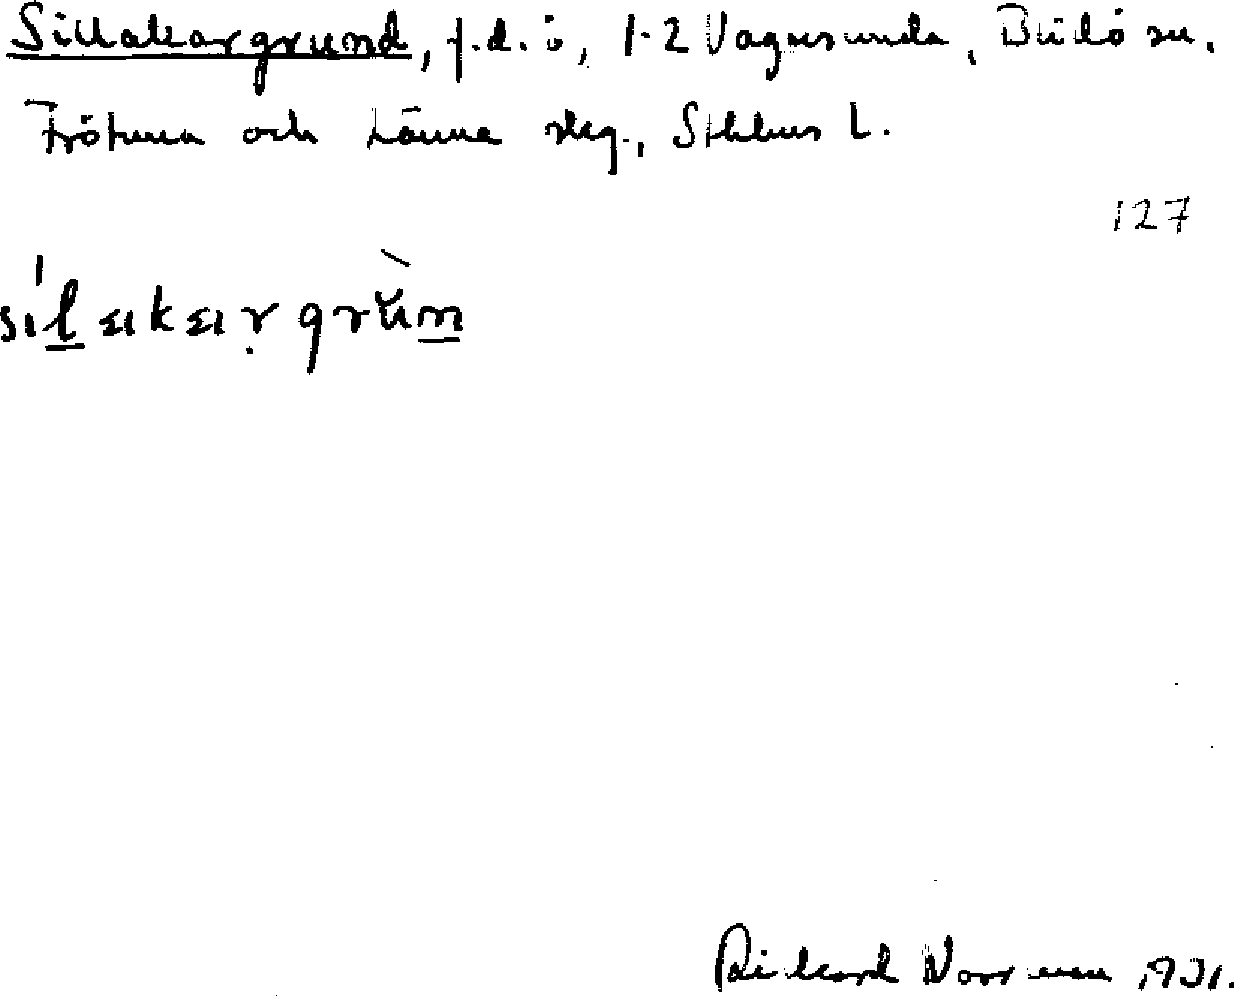 Sillakargrund, f.d. ö, 1-2 Vagnsunda, Blidö sn.
Frötuna och Länna skg., Sthlms l.
127
Rickard Norrman 1931.